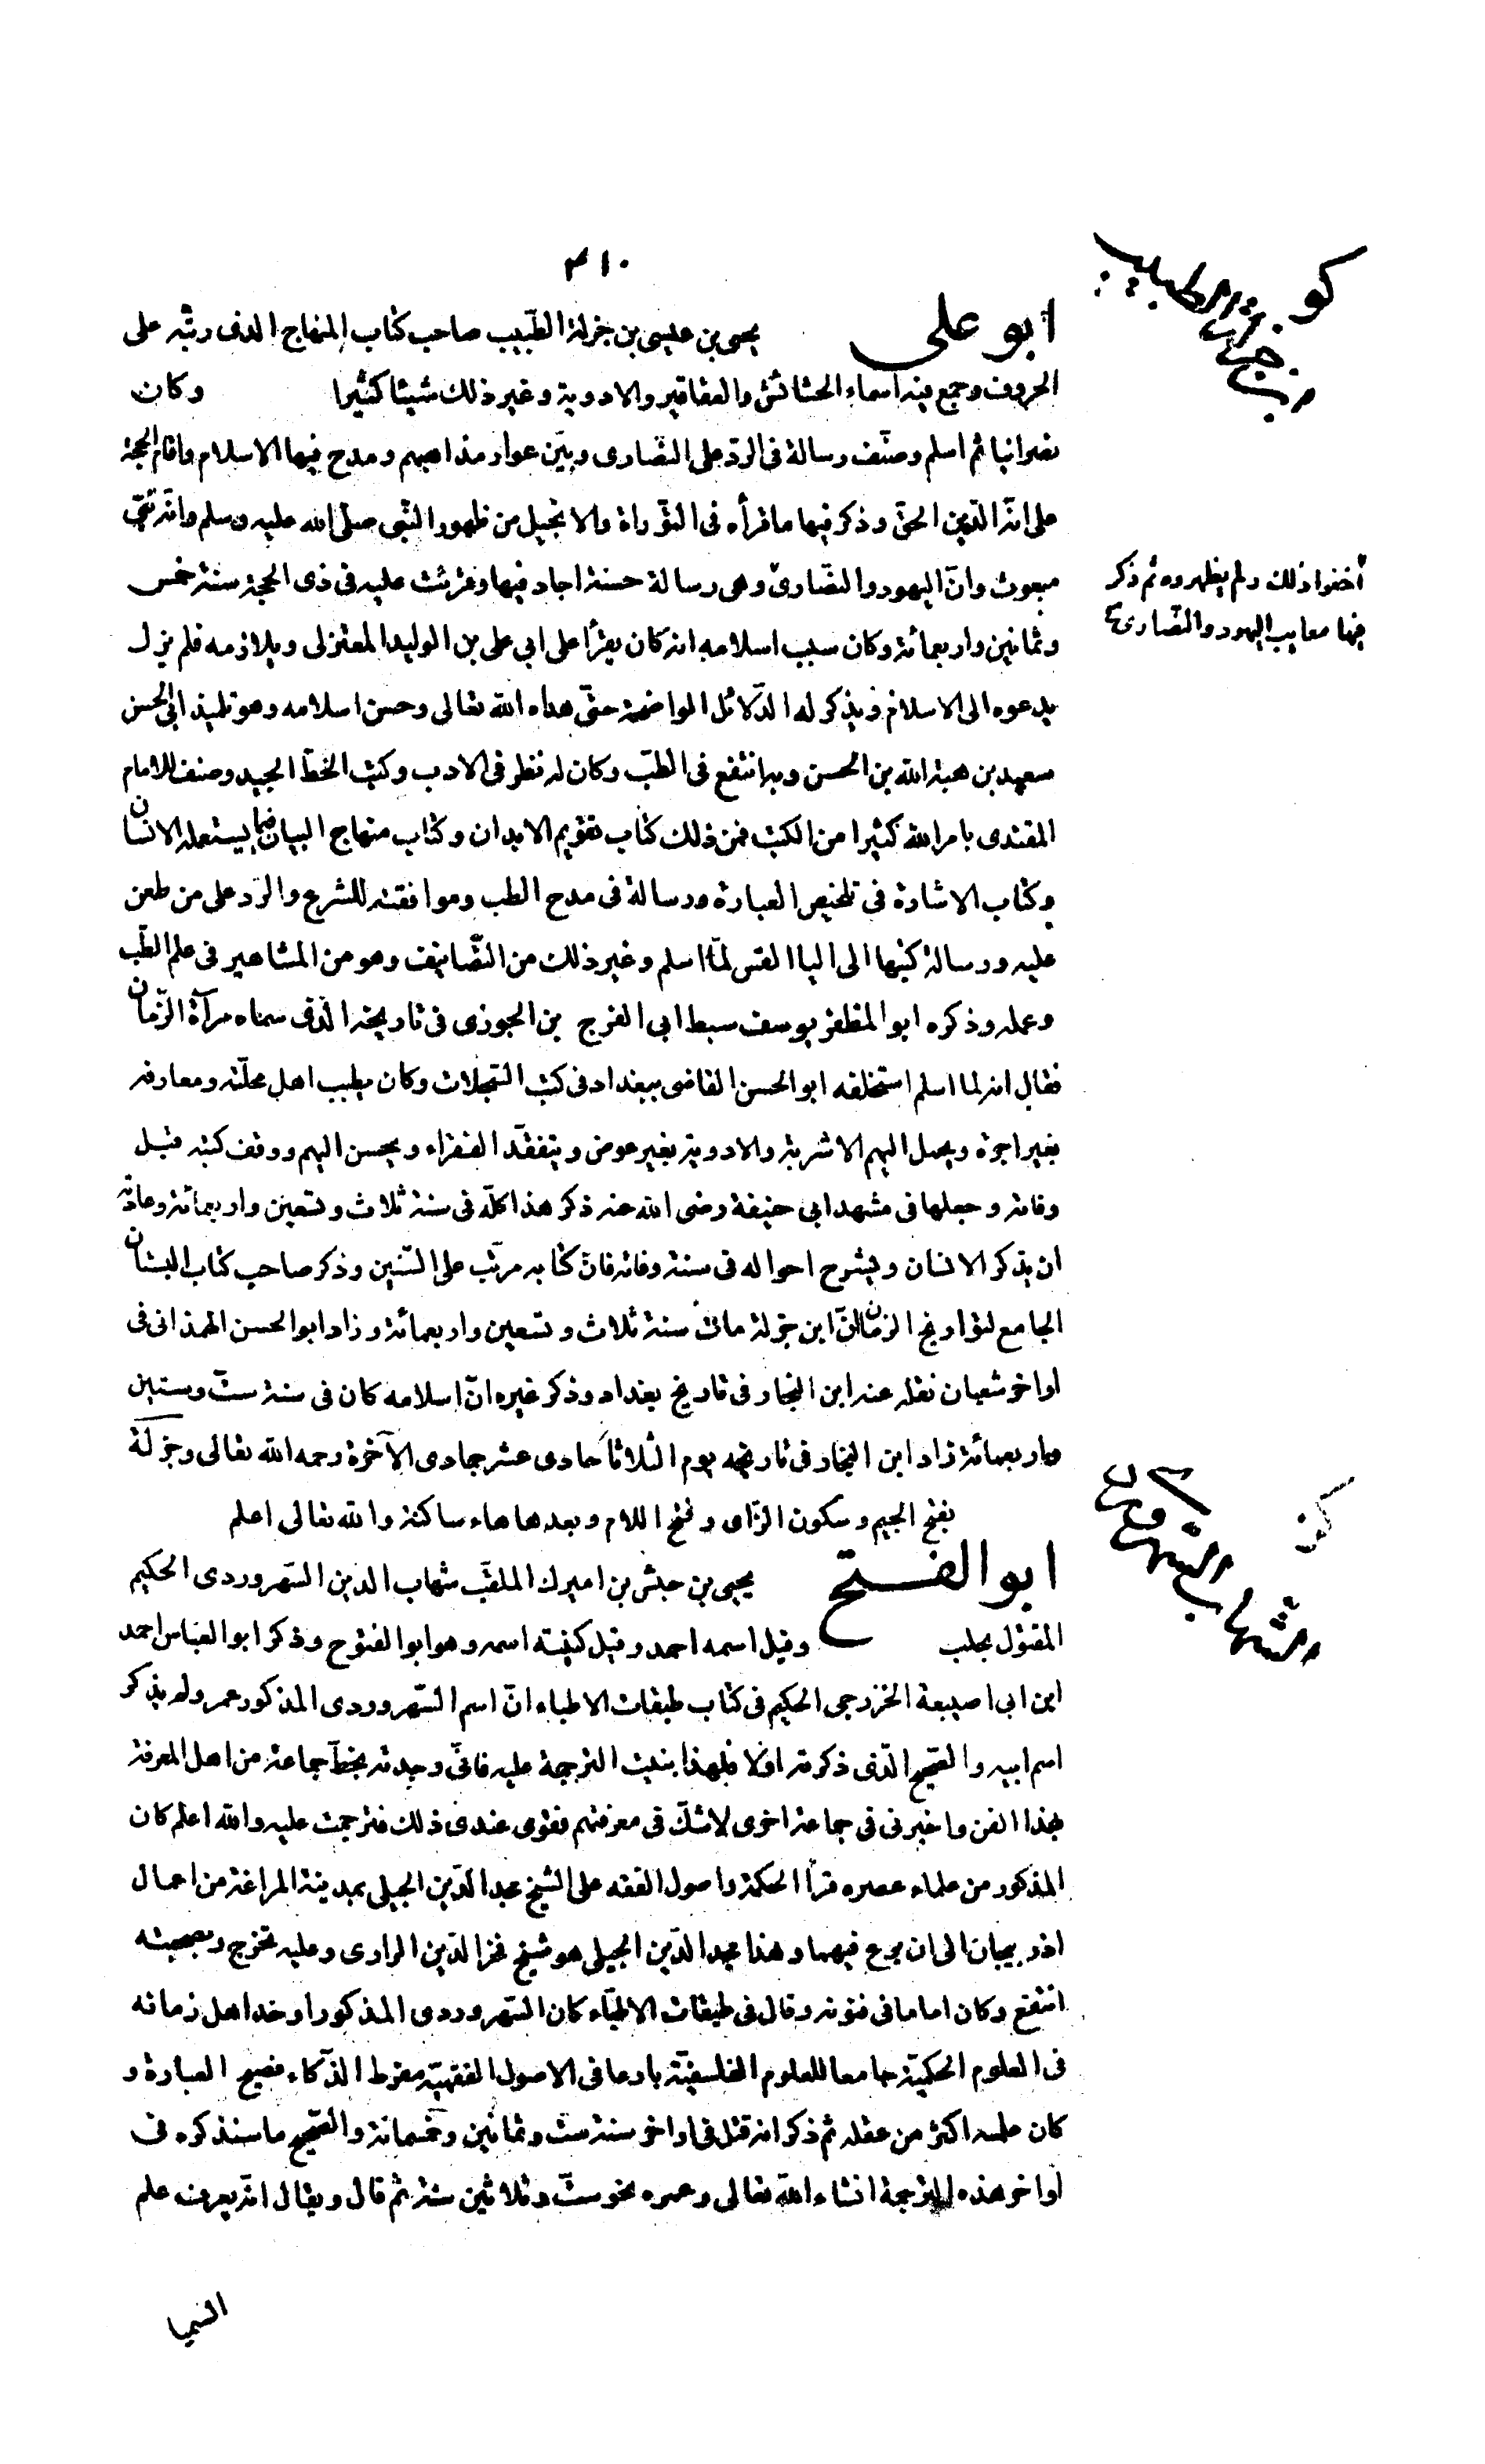 ٣١٠
كو
ابن جزلة الطبيب
ابو على يحيى بن عيسى بن جزلة الطّبيب صاحب كتاب المنهاج الذى رتّبه على
الحروف وجمع فيه اسماء الحشائش والعقاقير والادوية وغير ذلك شيئا كثيرا وكان
نصرانيا ثم اسلم وصنّف رسالة فى الردّ على النصّارى وبيّن عوار مذاهبهم ومدح فيها الاسلام واقام الحجة
على انّه الدّين الحقّ وذكر فيها ما قرأه فى التوّراة والانجيل من ظهور النّبى صلى الله عليه وسلم وانّه نبىّ
مبعوث وانّ اليهود والنصّارى وهى رسالة حسنة اجاد فيها وقرئت عليه فى ذى الحجة سنة خمس
أخفوا ذلك ولم يظهروه ثم ذكر
فيها معايب اليهود والنّصارى
وثمانين واربعمائة وكان سبب اسلامه انه كان يقرأ على ابى على بن الوليد المعتزلى ويلازمه فلم يزل
يدعوه الى الاسلام ويذكر له الدّلائل الواضحة حتّى هداه الله تعالى وحسن اسلامه وهو تلميذ ابى الحسن
سعيد بن هبة الله بن الحسن وبه انتفع فى الطبّ وكان له نظر فى الادب وكتب الخطّ الجيد وصنف للامام
المقتدى بامر الله كثيرا من الكتب فمن ذلك كتاب تقويم الابدان وكتاب منهاج البيان فيما يستعمله الانسان
وكتاب الاشارة فى تلخيص العبارة ورسالة فى مدح الطب وموافقته للشرع والرّد على من طعن
عليه ورسالة كتبها الى اليا القس لمّا اسلم وغير ذلك من التصّانيف وهو من المشاهير فى علم الطّب
وعمله وذكره ابو المظفر يوسف سبط ابى الفرج بن الجوزى فى تاريخه الذى سماه مرآة الزّمان
فقال انه لما اسلم استخلفه ابو الحسن القاضى ببغداد فى كتب السّجلات وكان يطبب اهل محلّته ومعارفه
بغير اجرة ويحمل اليهم الاشربة والادوية بغير عوض ويتفقّد الفقراء ويحسن اليهم ووقف كتبه قبل
وفاته وجعلها فى مشهد ابى حنيفة رضى الله عنه ذكر هذا كلّه فى سنة ثلاث وتسعين واربعمائة وعادته
ان يذكر الانسان ويشرح احواله فى سنة وفاته فانّ كتابه مرتّب على السّنين وذكر صاحب كتاب البستان
الجامع لتواريخ الزمان انّ ابن جزلة مات سنة ثلاث وتسعين واربعمائة وزاد ابو الحسن الهمذانى فى
اواخر شعبان نقله عنه ابن النجار فى تاريخ بغداد وذكر غيره انّ اسلامه كان فى سنة ستّ وستين
واربعمائة زاد ابن النجار فى تاريخه يوم الثلاثا حادى عشر جمادى الآخرة رحمه الله تعالى وجزلة
بفتح الجيم وسكون الزّاى وفتح اللام وبعدها هاء ساكنة والله تعالى اعلم
كز
الشّهاب السّهروردى
ابو الفتح يحيى بن حبش بن اميرك الملقّب شهاب الدين السّهروردى الحكيم
المقتول بحلب وقيل اسمه احمد وقيل كنيته اسمه وهو ابو الفتوح وذكر ابو العباس احمد
ابن ابى اصيبعة الخزرجى الحكيم فى كتاب طبقات الاطباء انّ اسم السّهروردى المذكور عمر ولم يذكر
اسم ابيه والصّحيح الّذى ذكرته اوّلا فلهذا بنيت الترجمة عليه فانّى وجدته بخطّ جماعة من اهل المعرفة
بهذا الفن واخبرنى فى جماعة اخرى لا شكّ فى معرفتهم فقوى عندى ذلك فترجمت عليه والله اعلم كان
المذكور من علماء عصره قرأ الحكمة واصول الفقه على الشيخ مجد الدّين الجيلى بمدينة المراغة من اعمال
اذربيجان الى ان برع فيهما وهذا مجد الدّين الجيلى هو شيخ فخر الدّين الرازى وعليه تخرج وبصحبته
انتفع وكان اماما فى فنونه وقال فى طبقات الاطبّاء كان السّهروردى المذكور اوحد اهل زمانه
فى العلوم الحكميّة جامعا للعلوم الفلسفيّة بارعا فى الاصول الفقهيّة مفرط الذّكاء فصيح العبارة و
كان علمه اكثر من عقله ثم ذكر انه قتل فى اواخر سنة ستّ وثمانين وخمسمائة والصّحيح ما سنذكره فى
اواخر هذه الترجمة انشاء الله تعالى وعمره نحو ستّ وثلاثين سنة ثم قال ويقال انّه يعرف علم
السيميا